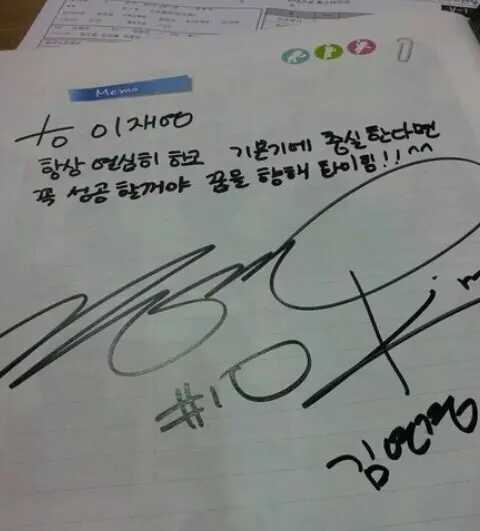 Memo
to 이재영
항상 열심히 하고 기본기에 충실한다면
꼭 성공할꺼야 꿈을 향해 화이팅!!^^
Kim
#10
김연경